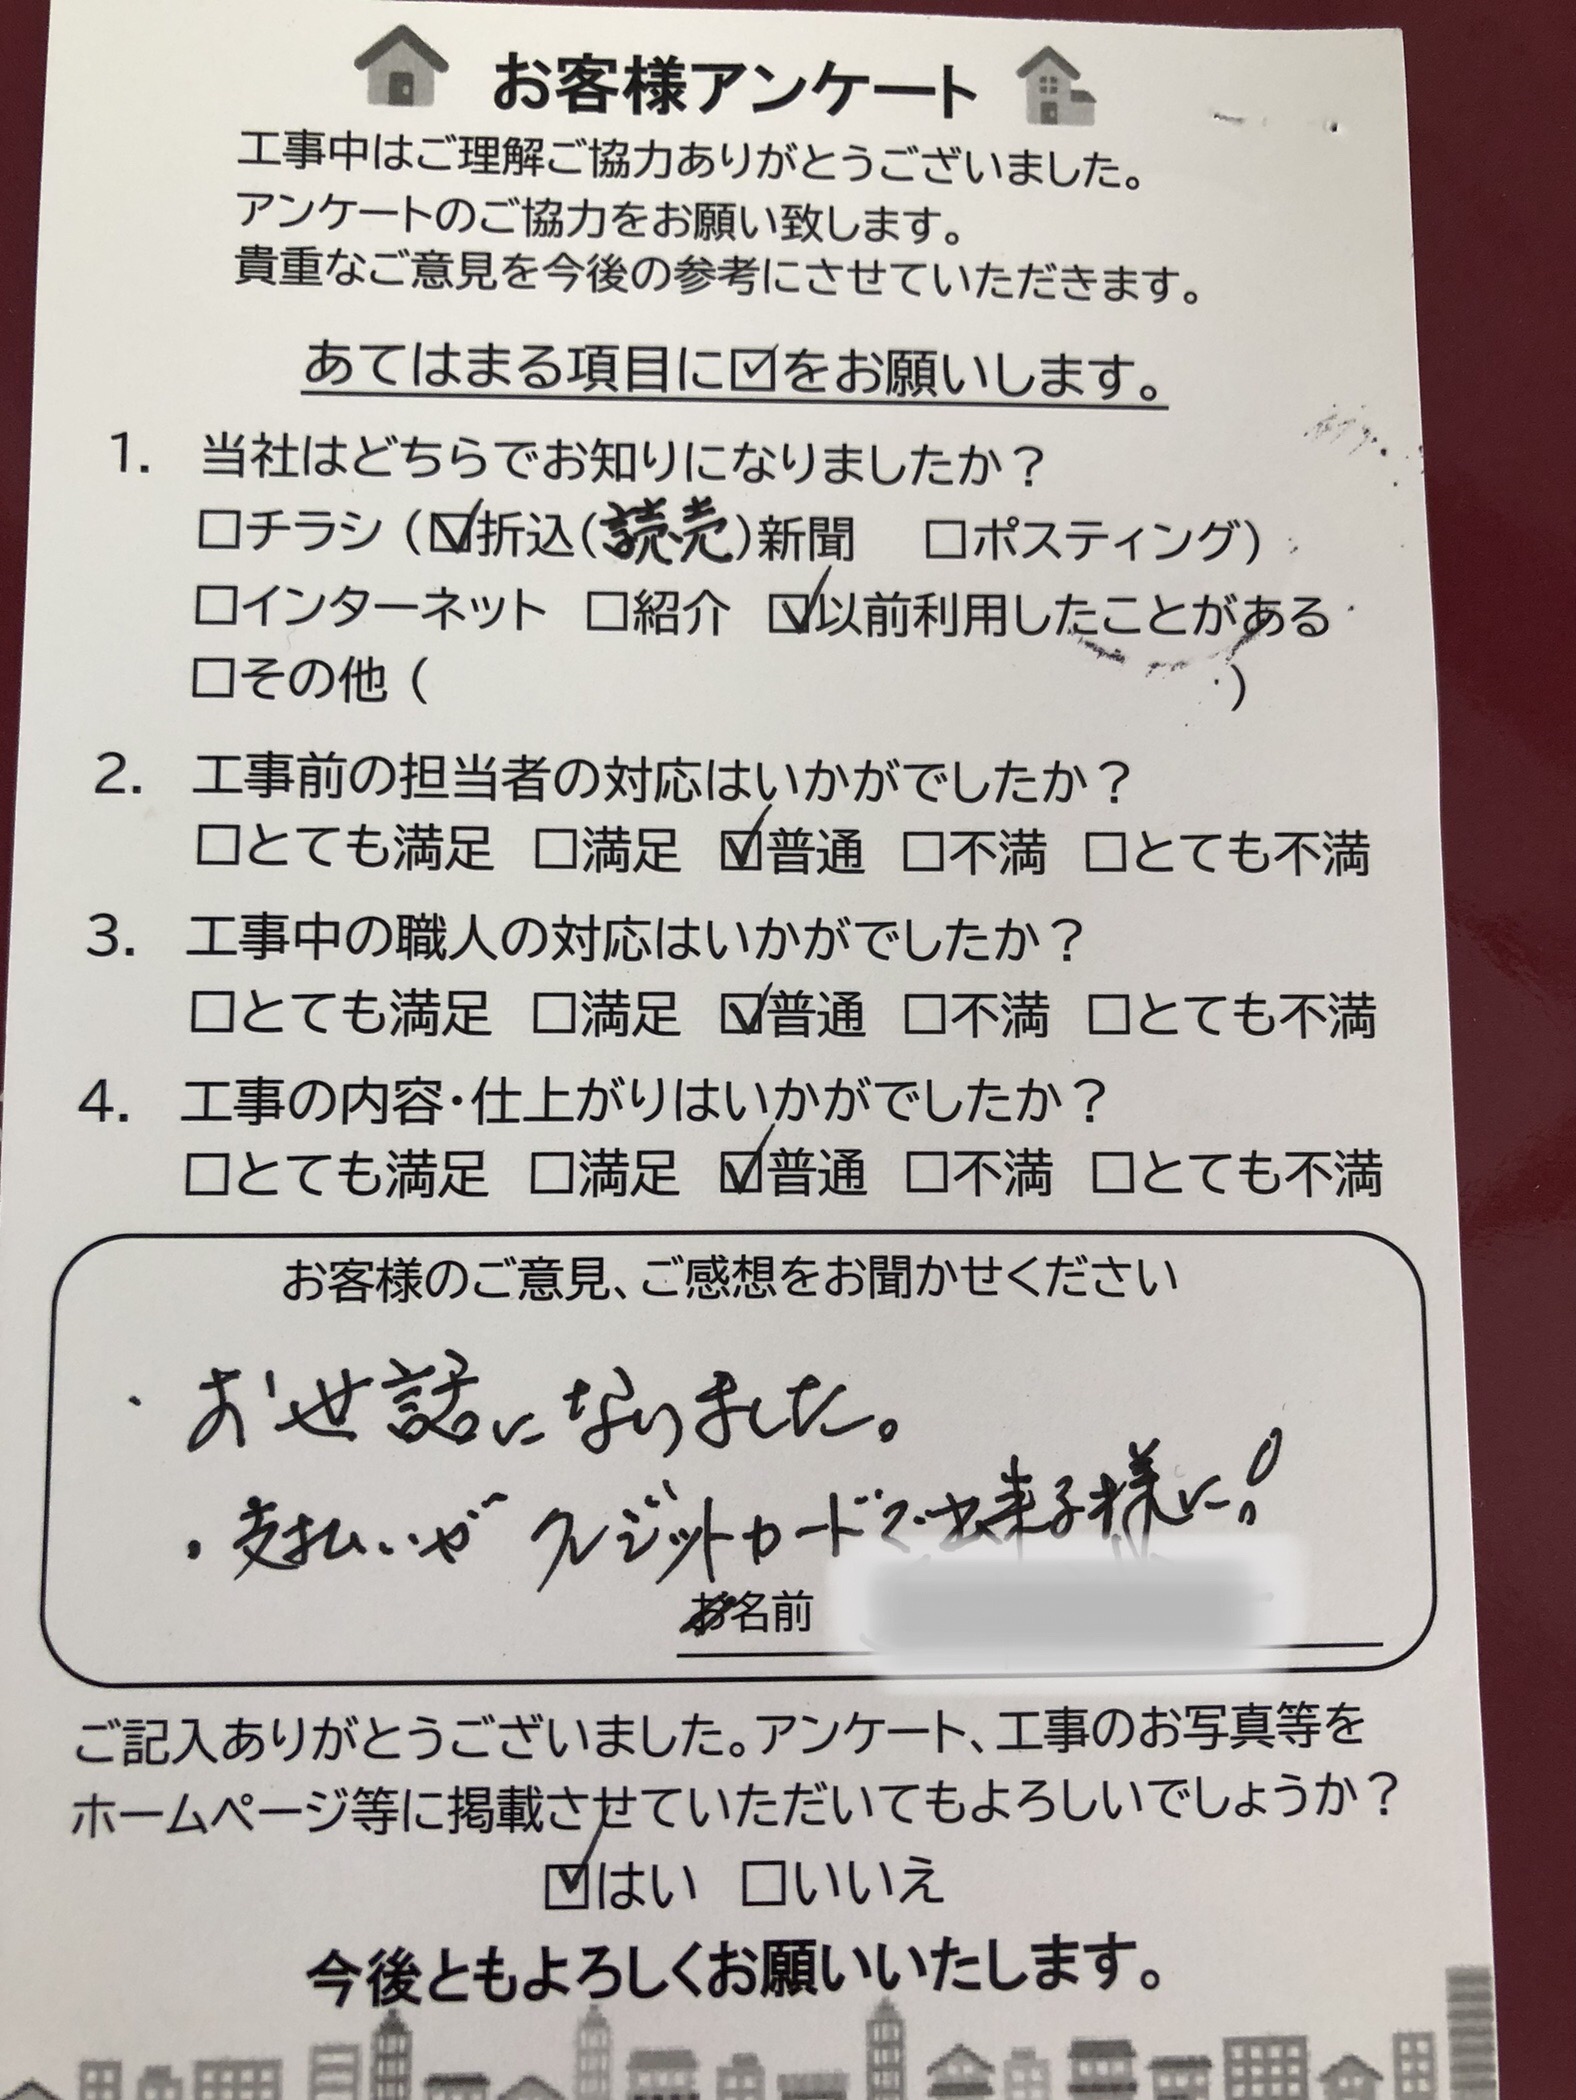 お客様アンケート
工事中はご理解ご協力ありがとうございました。
アンケートのご協力をお願い致します。
貴重なご意見を今後の参考にさせていただきます。
あてはまる項目に☑をお願いします。
1. 当社はどちらでお知りになりましたか？
□チラシ（☑折込(読売)新聞 □ポスティング）
□インターネット □紹介 ☑以前利用したことがある
□その他（ ）
2. 工事前の担当者の対応はいかがでしたか？
□とても満足 □満足 ☑普通 □不満 □とても不満
3. 工事中の職人の対応はいかがでしたか？
□とても満足 □満足 ☑普通 □不満 □とても不満
4. 工事の内容・仕上がりはいかがでしたか？
□とても満足 □満足 ☑普通 □不満 □とても不満
お客様のご意見、ご感想をお聞かせください
・お世話になりました。
・支払いがクレジットカードで出来る様に!
お名前
ご記入ありがとうございました。アンケート、工事のお写真等を
ホームページ等に掲載させていただいてもよろしいでしょうか？
☑はい □いいえ
今後ともよろしくお願いいたします。